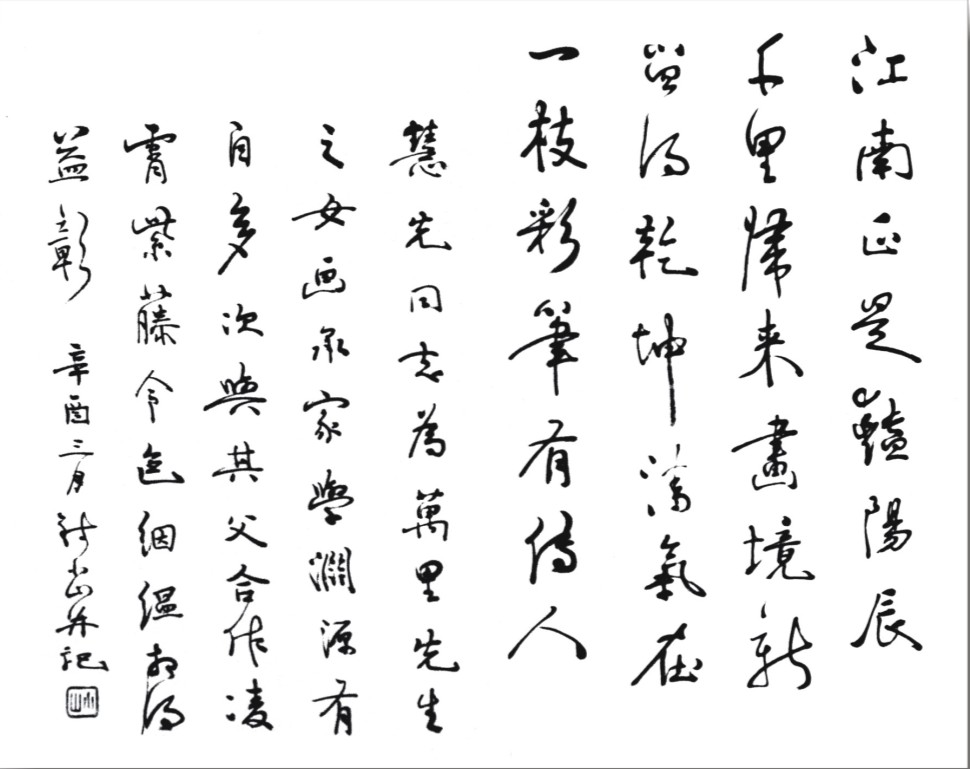 江南正是豔陽辰
千里歸来畫境新
留得乾坤清氣在
一枝彩筆有傳人
慧先同志為萬里先生
之女画承家學淵源有
自多次與其父合作凌
霄紫藤令色絪緼相得
益彰 辛酉三月 并記